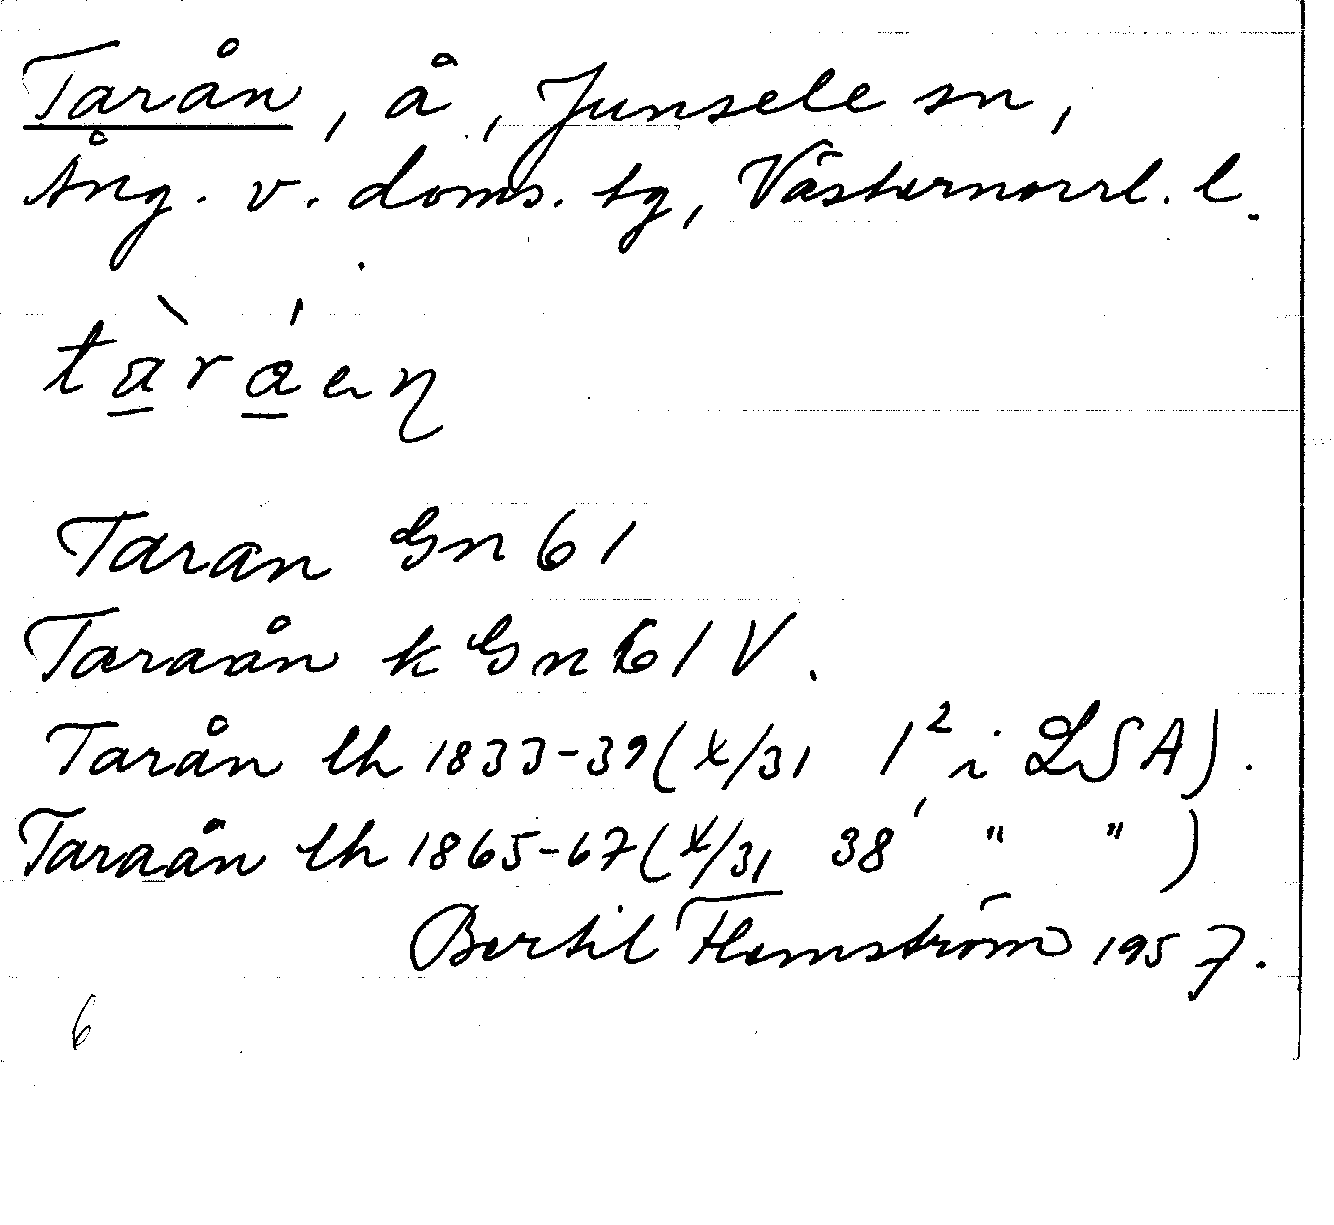 Tarån, å, Junsele sn,
Ång. v. doms. tg, Västernorrl. l.
tàráeŋ
Taran Gn 61
Taraån k Gn 61 V.
Tarån lh 1833-39 (X/31 1² i LSA).
Taraån lh 1865-67 (X/31 38' " " )
Bertil Flemström 1957.
6